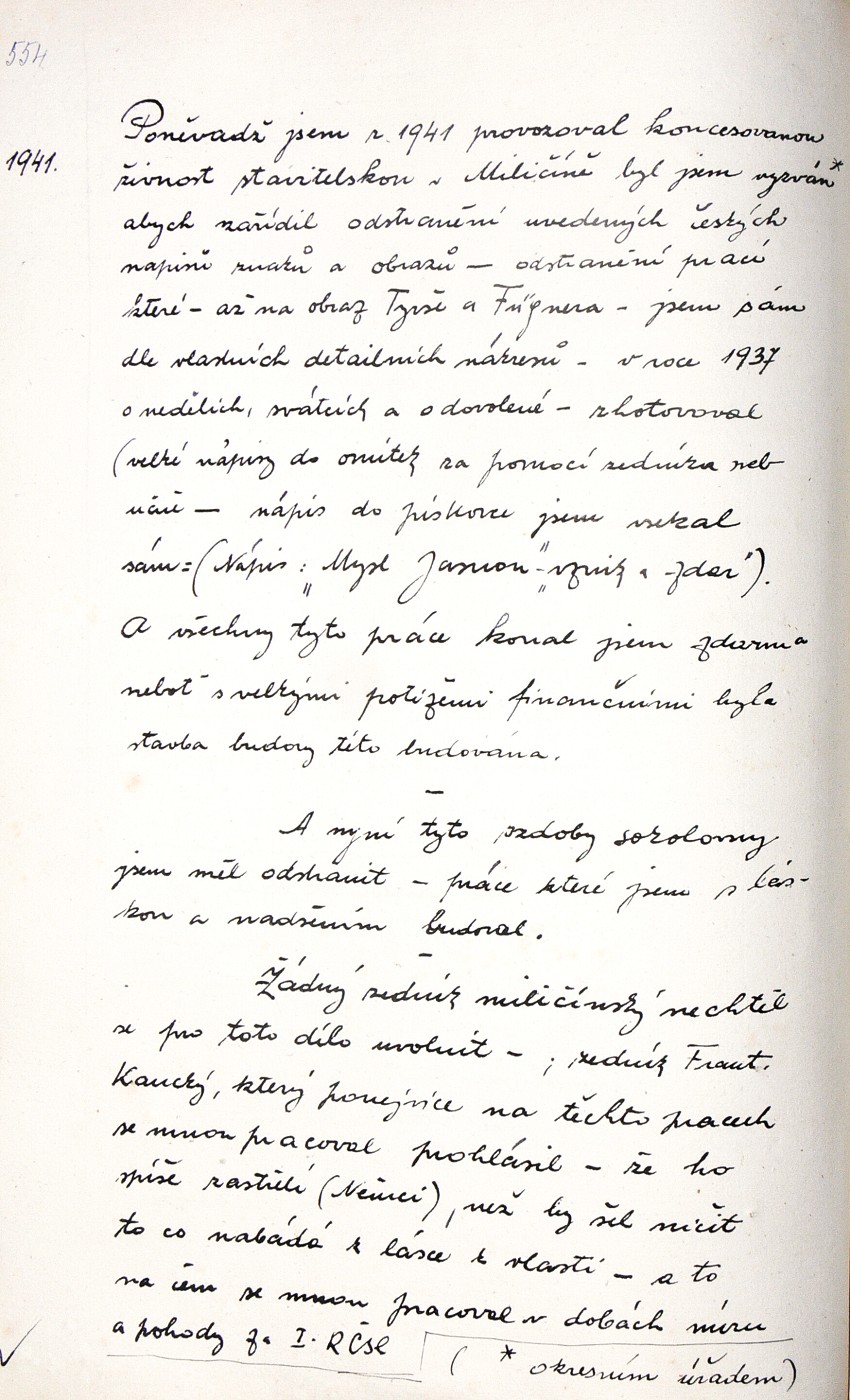 554
1941.
Poněvadž jsem r. 1941 provozoval koncesovanou
živnost stavitelskou v Miličíně byl jsem vyzván*
abych zařídil odstranění uvedených českých
nápisů znaků a obrazů — odstranění prací
které – až na obraz Tyrše a Fügnera – jsem sám
dle vlastních detailních nákresů – v roce 1937
o nedělích, svátcích a o dovolené – zhotovoval
(velké nápisy do omítky za pomocí zedníka neb
učně — nápis do pískovce jsem vsekal
sám = (Nápis: "Mysl Jasnou" – "vznik a zdar").
A všechny tyto práce konal jsem zdarma
neboť s velkými potížemi finančními byla
stavba budovy této budována.
—
A nyní tyto ozdoby sokolovny
jsem měl odstranit – práce které jsem s lás-
kou a nadšením budoval.
—
Žádný zedník miličínský nechtěl
se pro toto dílo uvolnit – ; zedník Frant.
Kaucký, který ponejvíce na těchto pracech
se mnou pracoval prohlásil – že ho
spíše zastřelí (Němci), než by šel ničit
to co nabádá k lásce k vlasti – a to
na čem se mnou pracoval v dobách míru
a pohody za I. RČSl
(* okresním úřadem)